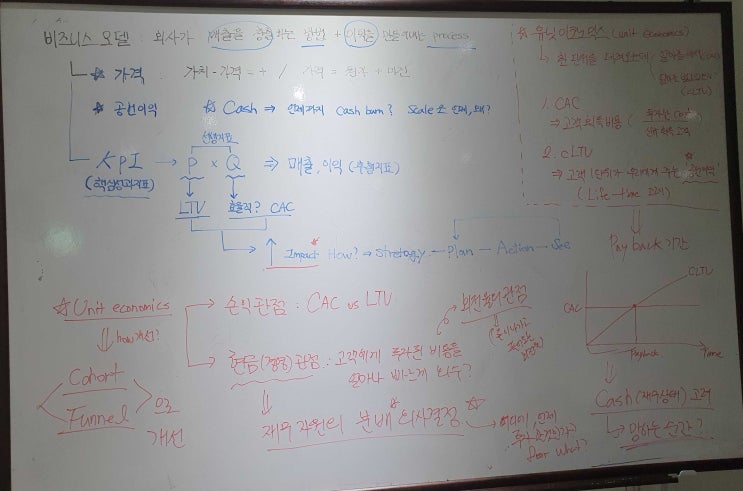 비즈니스 모델 : 회사가 매출을 창출하는 방법 + 이익을 만들어내는 process
☆ 가격 가치 - 가격 = + / 가격 = 원가 + 마진
☆ 공헌이익 ☆ Cash ⇒ 언제까지 Cash burn? Scale은 언제, 왜?
선행지표
KPI → P × Q ⇒ 매출, 이익 (후행지표)
(핵심성과지표)
LTV 효율적? CAC
↑ Impact How? → Strategy ← Plan — Action — See
☆ 유닛 이코노믹스 (unit economics)
→ 한 단위를 데려오는데
(CLTV)
1. CAC
⇒ 고객 획득 비용 ( 투자한 cost / 신규 획득 고객
2. CLTV
⇒ 고객 1단위가 우리에게 주는 '공헌이익'
(Life-time 고려)
Payback 기간
CLTV
CAC
Payback
Time
Cash (재무상태) 고려
→ 망하는 순간?
☆ Unit economics
⇓ how 개선?
Cohort
Funnel
으로
개선
손익 관점 : CAC vs LTV
현금(경영) 관점 : 고객에게 투자된 비용을
얼마나 빠르게 회수?
회전율의 관점
재무 자원의 분배 의사결정 ☆
→ 어디에, 언제
for what?